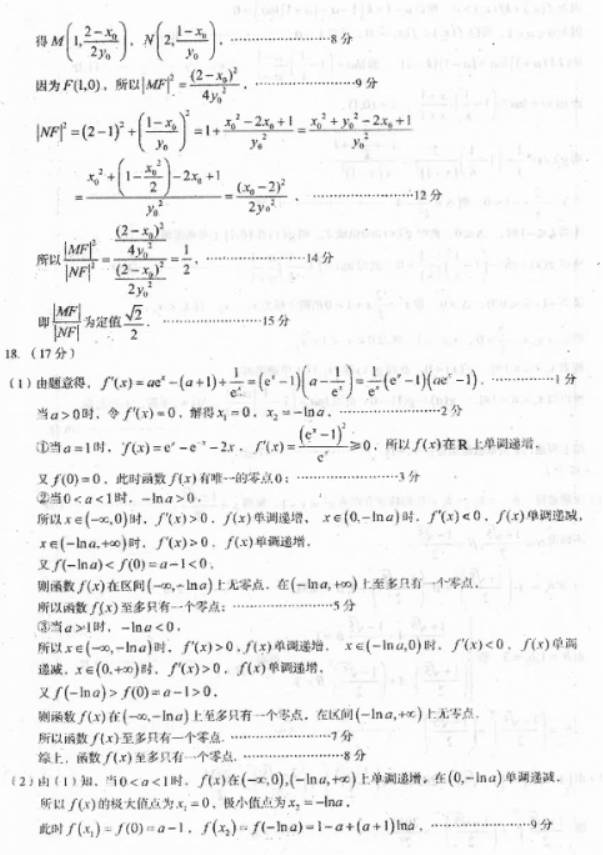 得 M(1, (2-x₀)/(2y₀)), N(2, (1-x₀)/y₀), ……………………8分
因为 F(1,0), 所以|MF|² = (2-x₀)²/(4y₀²), ……………………9分
|NF|² = (2-1)² + ((1-x₀)/y₀)² = 1 + (x₀²-2x₀+1)/y₀² = (x₀²+y₀²-2x₀+1)/y₀²
= (x₀²+(1-x₀²/2)-2x₀+1)/y₀² = (x₀-2)²/(2y₀²). ……………………12分
所以 |MF|²/|NF|² = ((2-x₀)²/(4y₀²))/((2-x₀)²/(2y₀²)) = 1/2, ……………………14分
即 |MF|/|NF| 为定值 √2/2. ……………………15分
18. (17分)
(1) 由题意得, f′(x)=aeˣ-(a+1)+1/eˣ=(eˣ-1)(a-1/eˣ)=1/eˣ(eˣ-1)(aeˣ-1). ……………………1分
当a>0时, 令f′(x)=0, 解得x₁=0, x₂=-lna, ……………………2分
①当a=1时, f(x)=eˣ-e⁻ˣ-2x, f′(x)=(eˣ-1)²/eˣ≥0, 所以f(x)在R上单调递增,
又f(0)=0, 此时函数f(x)有唯一的零点0; ……………………3分
②当0<a<1时, -lna>0,
所以x∈(-∞,0)时, f′(x)>0, f(x)单调递增, x∈(0,-lna)时, f′(x)<0, f(x)单调递减,
x∈(-lna,+∞)时, f′(x)>0, f(x)单调递增.
又f(-lna)<f(0)=a-1<0,
则函数f(x)在区间(-∞,-lna)上无零点, 在(-lna,+∞)上至多只有一个零点,
所以函数f(x)至多只有一个零点; ……………………5分
③当a>1时, -lna<0,
所以x∈(-∞,-lna)时, f′(x)>0, f(x)单调递增, x∈(-lna,0)时, f′(x)<0, f(x)单调
递减, x∈(0,+∞)时, f′(x)>0, f(x)单调递增,
又f(-lna)>f(0)=a-1>0,
则函数f(x)在(-∞,-lna)上至多只有一个零点, 在区间(-lna,+∞)上无零点
所以函数f(x)至多只有一个零点. ……………………7分
综上, 函数f(x)至多只有一个零点. ……………………8分
(2) 由(1)知, 当0<a<1时, f(x)在(-∞,0),(-lna,+∞)上单调递增, 在(0,-lna)单调递减.
所以f(x)的极大值点为x₁=0, 极小值点为x₂=-lna,
此时f(x₁)=f(0)=a-1, f(x₂)=f(-lna)=1-a+(a+1)lna, ……………………9分